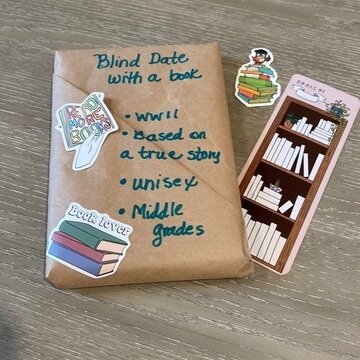 Blind Date
with a book
• WWII
• Based on
a true story
• unisex
• Middle
grades
READ
MORE
BOOKS
Book lover